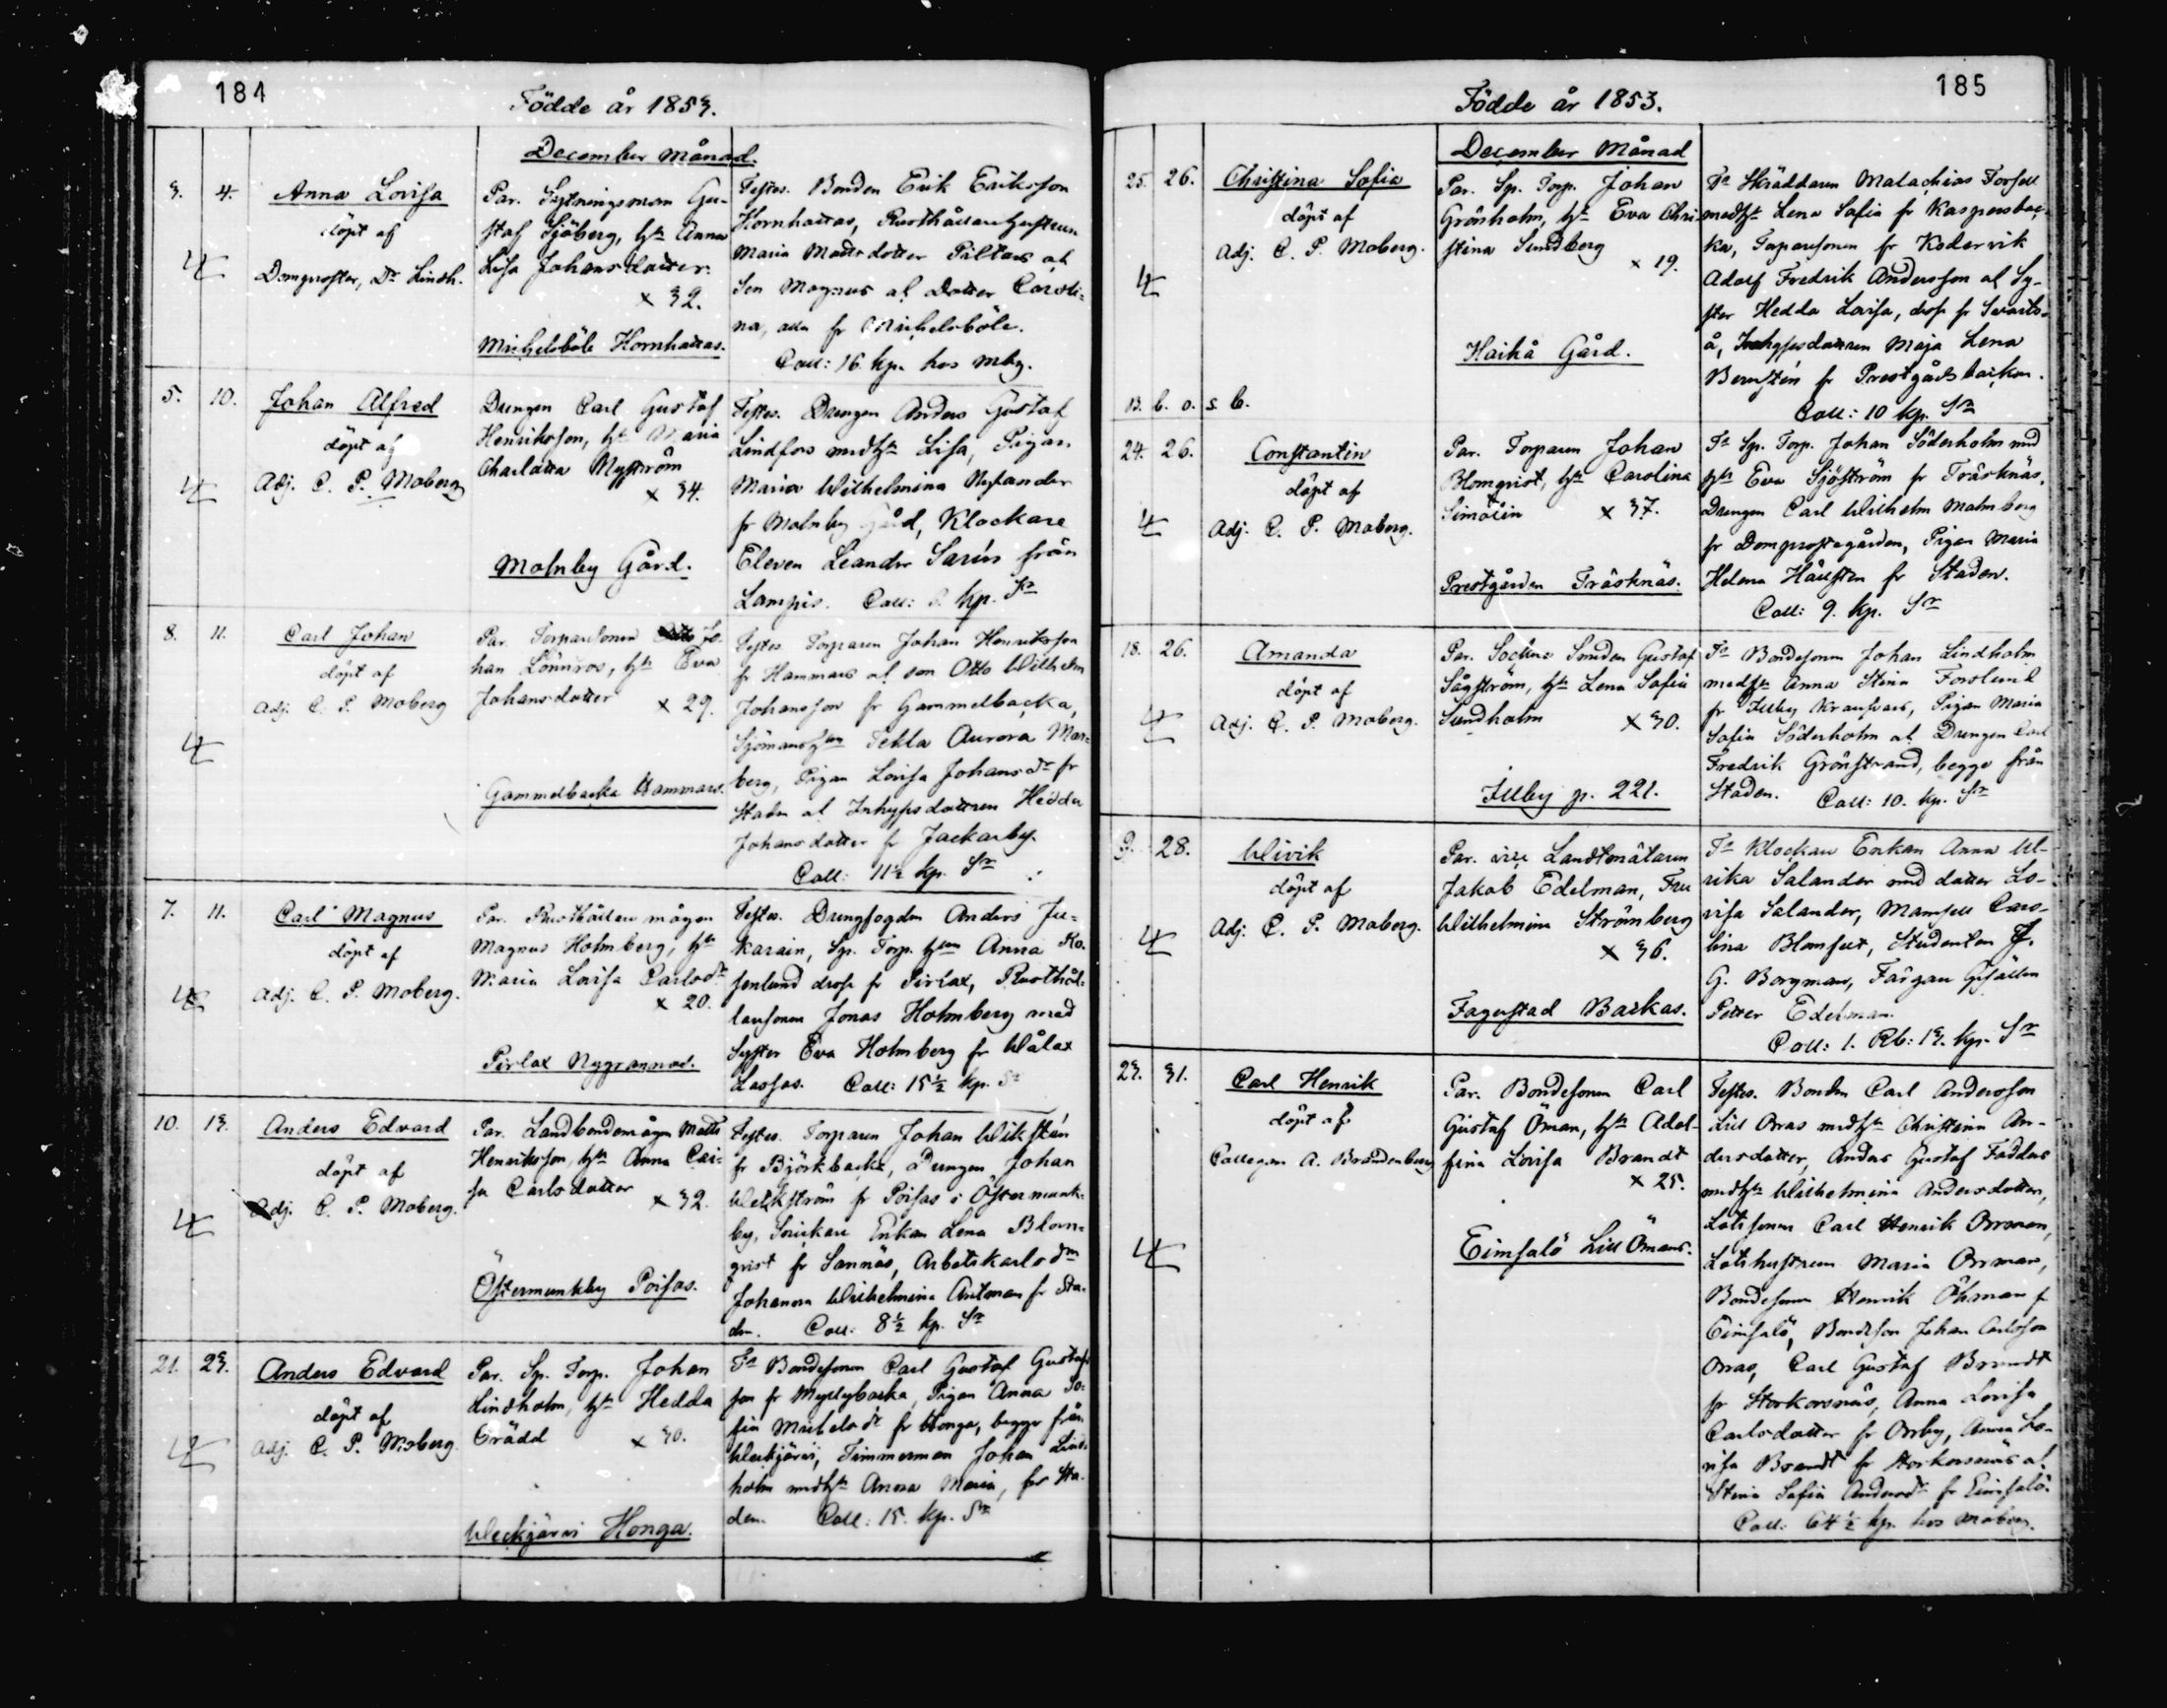 184
Födde år 1853.
December månad.
3. 4. Anna Lovisa
döpt af
Domprosten, Dr Lindh.
Par. Sytningsman Gu-
staf Sjöberg, h. Anna
Lisa Johansdotter.
x 32.
Michelsböle Hornhattas.
Testes. Bonden Erik Eriksson
Hornhattas, Rusthållarehustrun
Maria Matsdotter
Son Magnus Dotter Caroli-
na, alla fr Michelsböle.
Coll: 16 kp. hos mbg.
5. 10. Johan Alfred
döpt af
Adj. C. P. Moberg
Drengen Carl Gustaf
Henriksson, h. Maria
Charlotta Nyström
x 34.
Molnby Gård.
Testes. Drengen Anders Gustaf
Lindfors Lisa, Pigan
Maria Wilhelmina Nylander
fr Molnby Gård, Klockare
Eleven Leander från
Lampis. Coll: kp. Sr
8. 11. Carl Johan
döpt af
Adj. C. P. Moberg
Par. Torparsonen Jo-
han Lönnros, h. Eva
Johansdotter x 29.
Gammelbacka Hammars.
Testes Torparen Johan Henriksson
fr Hammars son Otto Wilhelm
Johansson fr Gammelbacka,
Tekla Aurora Mar-
berg, Pigan Lovisa Johansdr fr
Inhysesdottren Hedda
Johansdotter fr Jackarby.
Coll: 11½ kp. Sr
7. 11. Carl Magnus
döpt af
Adj. C. P. Moberg.
Par. Rusthållaremågen
Magnus Holmberg, h.
Maria Lovisa Carlsdr
x 20.
Pirlax Nygrannas.
Testes. Drengfogden Anders Ju-
karain, Sp. Torp. Anna Ro-
senlund fr Pirlax, Rusthål-
laresonen Jonas Holmberg med
Syster Eva Holmberg fr Wålax
Lassas. Coll: 15½ kp. Sr
10. 13. Anders Edvard
döpt af
Adj. C. P. Moberg.
Par. Landbondemågen Matts
Henriksson, h. Anna Cai-
sa Carlsdotter x 32.
Östermunkby Poisas.
Testes. Torparen Johan Wiksten
fr Björkbacka, Drengen Johan
fr Poisas i Östermunk-
by, Enkan Lena Blom-
qvist fr Sannäs, Arbetskarls
Johanna Wilhelmina Antman fr Sta-
den. Coll: 8½ kp. Sr
21. 23. Anders Edvard
döpt af
Adj. C. P. Moberg.
Par. Sp. Torp. Johan
Lindholm, h. Hedda
Grädd x 30.
Weckjärvi Honga.
Ts Bondesonen Carl Gustaf Gustafs-
son fr Myllybacka, Pigan Anna So-
fia Michelsdr fr Honga, begge från
Weckjärvi, Timmerman Johan Lind-
holm Anna Maria, från Sta-
den. Coll: 15. kp. Sr
185
Födde år 1853.
December Månad
25. 26. Christina Sofia
döpt af
Adj. C. P. Moberg.
Par. Sp. Torp. Johan
Grönholm, h. Eva Chri-
stina Sundberg
x 19.
Haikå Gård.
Ts Skräddaren Malachias Forsell
Lena Sofia fr Kaspersbac-
ka, Torparsonen fr Kodervik
Adolf Fredrik Andersson Sy-
ster Hedda Lovisa, fr Svarts-
å, Inhysesdottren Maja Lena
Bernsten fr Prestgårdsbacken.
Coll: 10 kp. Sr
13. b. o. s. b.
24. 26. Constantin
döpt af
Adj. C. P. Moberg.
Par. Torparen Johan
Blomqvist, h. Carolina
Simolin x 37.
Prestgården Träsknäs.
Ts Sp. Torp. Johan Söderholm med
h. Eva Sjöström fr Träsknäs,
Drengen Carl Wilhelm Malmberg
fr Domprostsgården, Pigan Maria
Helena Hällsten fr Staden.
Coll: 9. kp. Sr
18. 26. Amanda
döpt af
Adj. C. P. Moberg.
Par. Sockne Smeden Gustaf
Sågström, h. Lena Sofia
Sundholm x 30.
Illby p. 221.
Ts Bondesonen Johan Lindholm
Anna Stina Forslund
fr Illby, Pigan Maria
Sofia Söderholm Drengen Carl
Fredrik Grönstrand, begge från
Staden. Coll: 10. kp. Sr
9. 28. Ulrik
döpt af
Adj. C. P. Moberg.
Par. vice Landtmätaren
Jakob Edelman, Fru
Wilhelmina Strömberg
x 36.
Fagerstad Backas.
Ts Klockare Enkan Anna Ul-
rika Salander med dotter Lo-
visa Salander, Mamsell Caro-
lina, Studenten J.
G. Borgman, Färgare Gesällen
Petter Edelman.
Coll: 1. Rb: 13. kp. Sr
23. 31. Carl Henrik
döpt af
Collegan A. Brandenburg
Par. Bondesonen Carl
Gustaf Öman, h. Adol-
fina Lovisa Brandt
x 25.
Eimsalö Lill Ömans.
Testes. Bonden Carl Andersson
Lill Orras Christina An-
dersdotter, Anders Gustaf Faddas
Wilhelmina Andersdotter,
Lotssonen Carl Henrik Orrman,
Lotshustrun Maria Orrman,
Bondesonen Henrik Öhman f
Eimsalö, Bondeson Johan Carlsson
Orras, Carl Gustaf Brandt
fr Storkorsnäs, Anna Lovisa
Carlsdotter fr Orrby, Anna Lo-
visa Brandt fr Storkorsnäs
Stina Sofia Andersdr fr Eimsalö.
Coll: 64½ kp. hos Moberg.